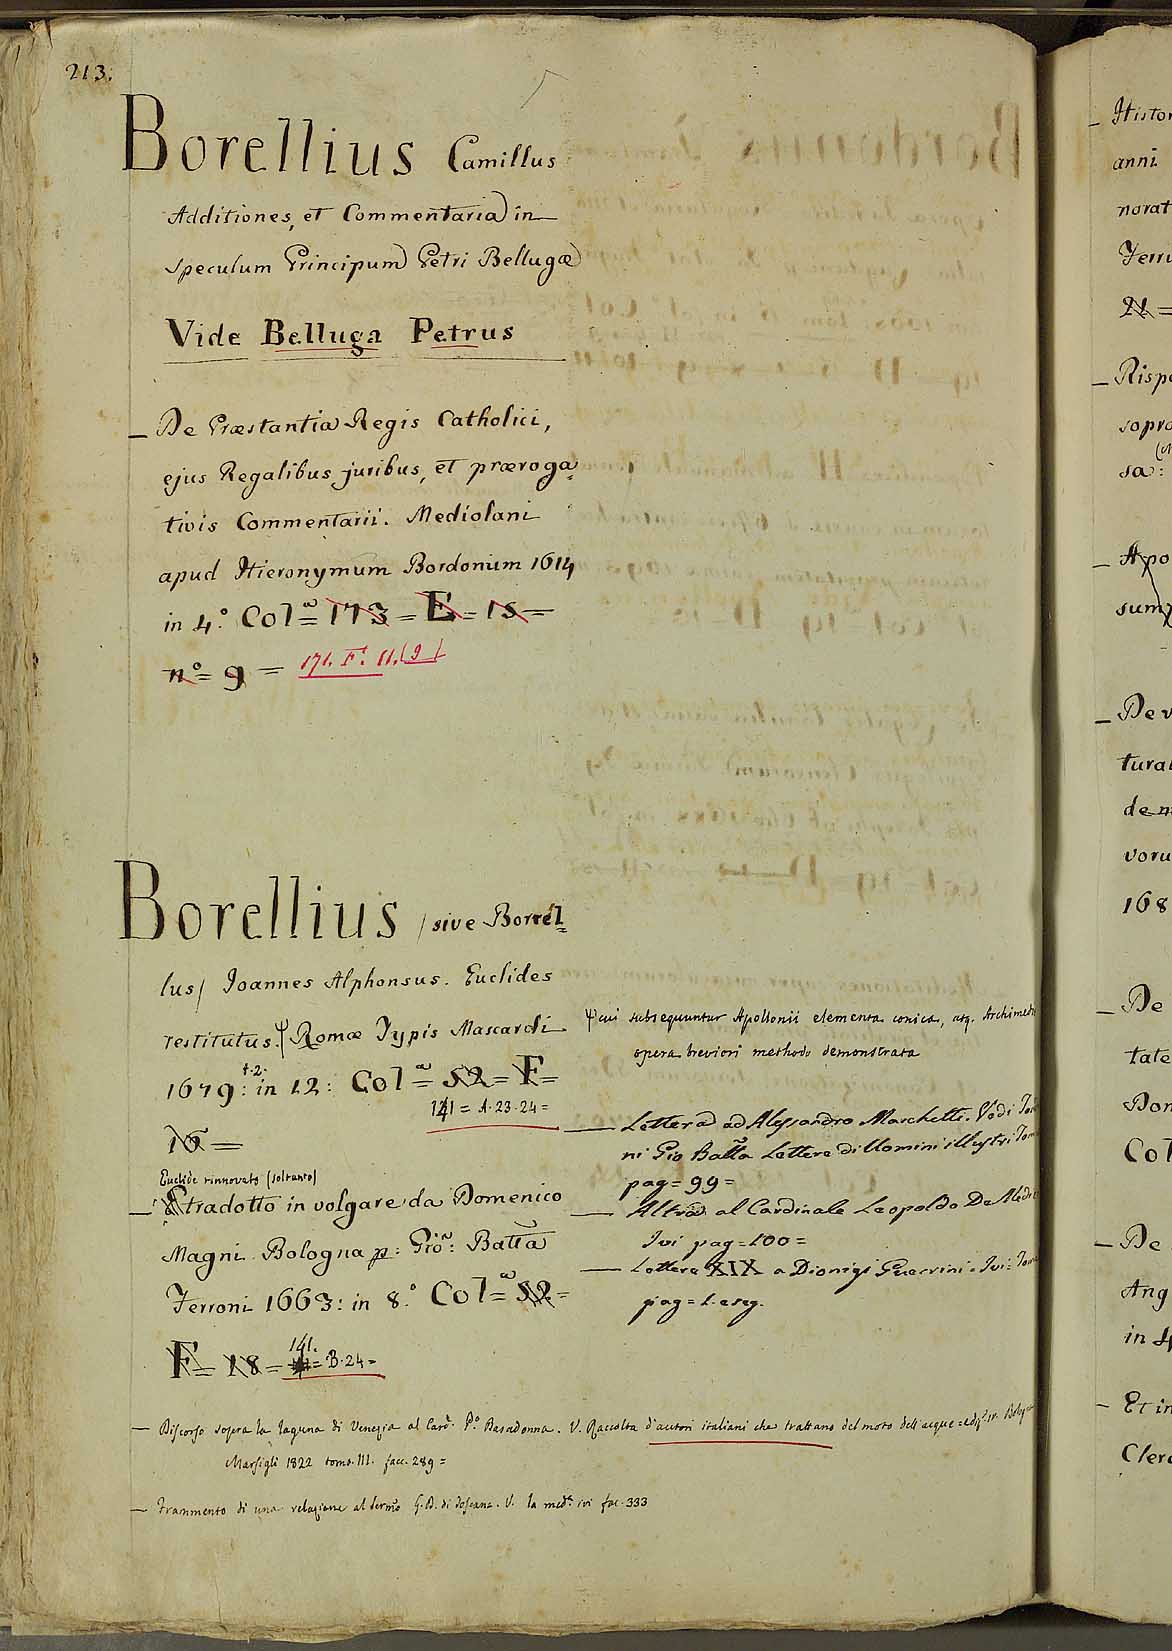 213.
Borellius Camillus
Additiones, et Commentaria in
speculum Principum Petri Bellugæ
Vide Belluga Petrus
— De Præstantia Regis Catholici,
ejus Regalibus juribus, et præroga=
tivis Commentarii. Mediolani
apud Hieronymum Bordonium 1614
in 4.° Col.ª = 173 = E = 15 =
n.° = 9 = 171. F. 11. (9)
Borellius / sive Borrel=
lus / Joannes Alphonsus. Euclides
restitutus. Romæ Typis Mascardi
1679: in 12: Col.ª = 52 = F =
t. 2.
141 = A. 23. 24 =
16 =
Euclide rinnovato (soltanto)
— tradotto in volgare da Domenico
Magni. Bologna p: Gio: Batta
Ferroni 1663: in 8.° Col.ª = 52 =
F = 18 = 141. = B. 24 =
cui subsequuntur Apollonii elementa conica, atq. Archimedis
opera breviori methodo demonstrata
— Lettera ad Alessandro Marchetti. Vedi
ni Gio Batta Lettere di Uomini illustri Tom
pag = 99 =
— Altra al Cardinale Leopoldo De
Ivi pag = 100 =
— Lettera XIX a Dionigi Guerrini. Ivi: Tom
pag = 1. e seg.
— Discorso sopra la laguna di Venezia al Card. P.° Basadonna. V. Raccolta d'autori italiani che trattano del moto dell'acque =
Marsigli 1822 tomo. III. facc. 289 =
— Frammento di una relazione al Sermo G. D. di Toscana. V. la med.ª ivi fac. 333
Histor
anni
norat
Ferr
21 =
— Rispo
sopra
sa:
— Apo
sum
— De v
tural
de n
voru
168
— De
tate
Don
Col
— De
Ang
in 4
— Et in
Clero